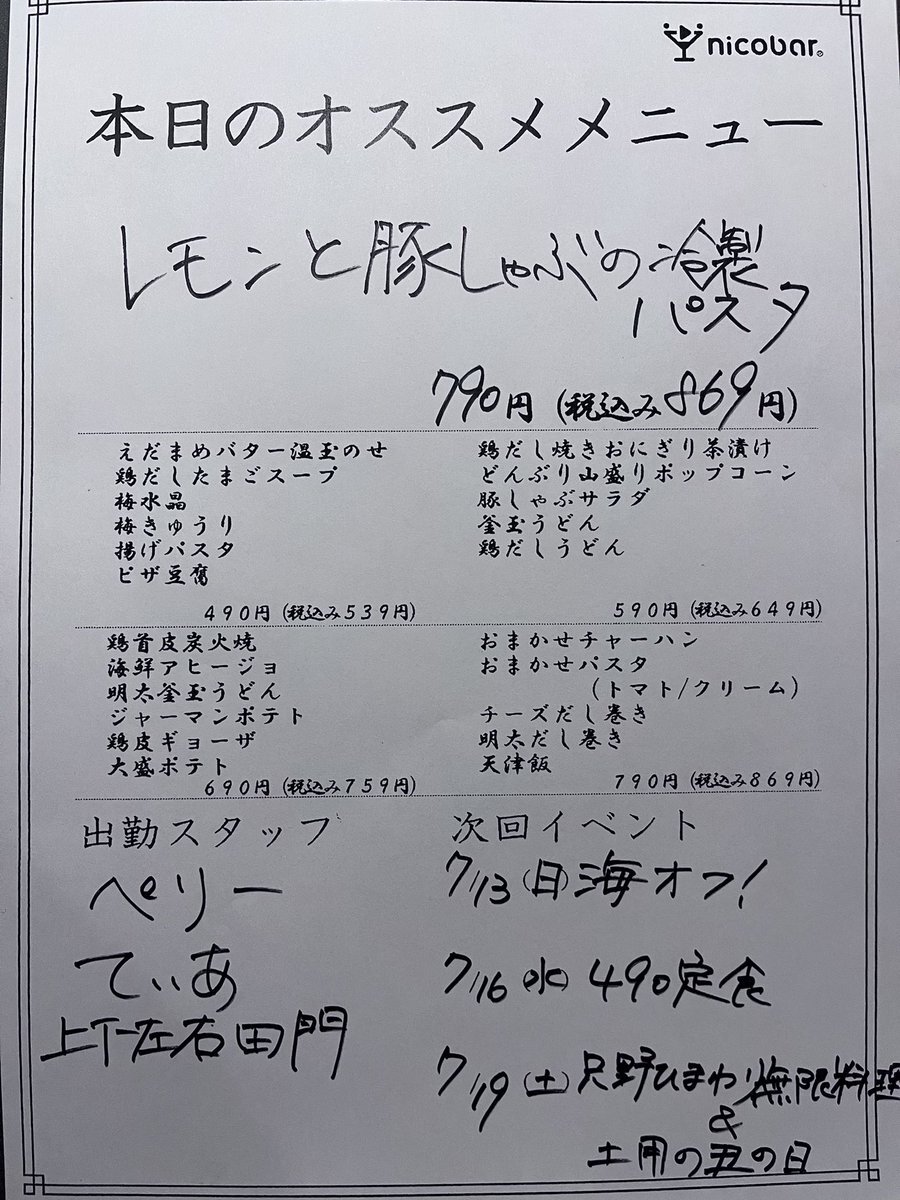 nicobar
本日のオススメメニュー
レモンと豚しゃぶの冷製
パスタ
790円(税込み869円)
えだまめバター温玉のせ
鶏だしたまごスープ
梅水晶
梅きゅうり
揚げパスタ
ピザ豆腐
490円(税込み539円)
鶏だし焼きおにぎり茶漬け
どんぶり山盛りポップコーン
豚しゃぶサラダ
釜玉うどん
鶏だしうどん
590円(税込み649円)
鶏首皮炭火焼
海鮮アヒージョ
明太釜玉うどん
ジャーマンポテト
鶏皮ギョーザ
大盛ポテト
690円(税込み759円)
おまかせチャーハン
おまかせパスタ
(トマト/クリーム)
チーズだし巻き
明太だし巻き
天津飯
790円(税込み869円)
出勤スタッフ
ペリー
てぃあ
上下左右田門
次回イベント
7/13(日)海オフ!
7/16(水)490定食
7/19(土)只野ひまわり無限料理
&
土用の丑の日